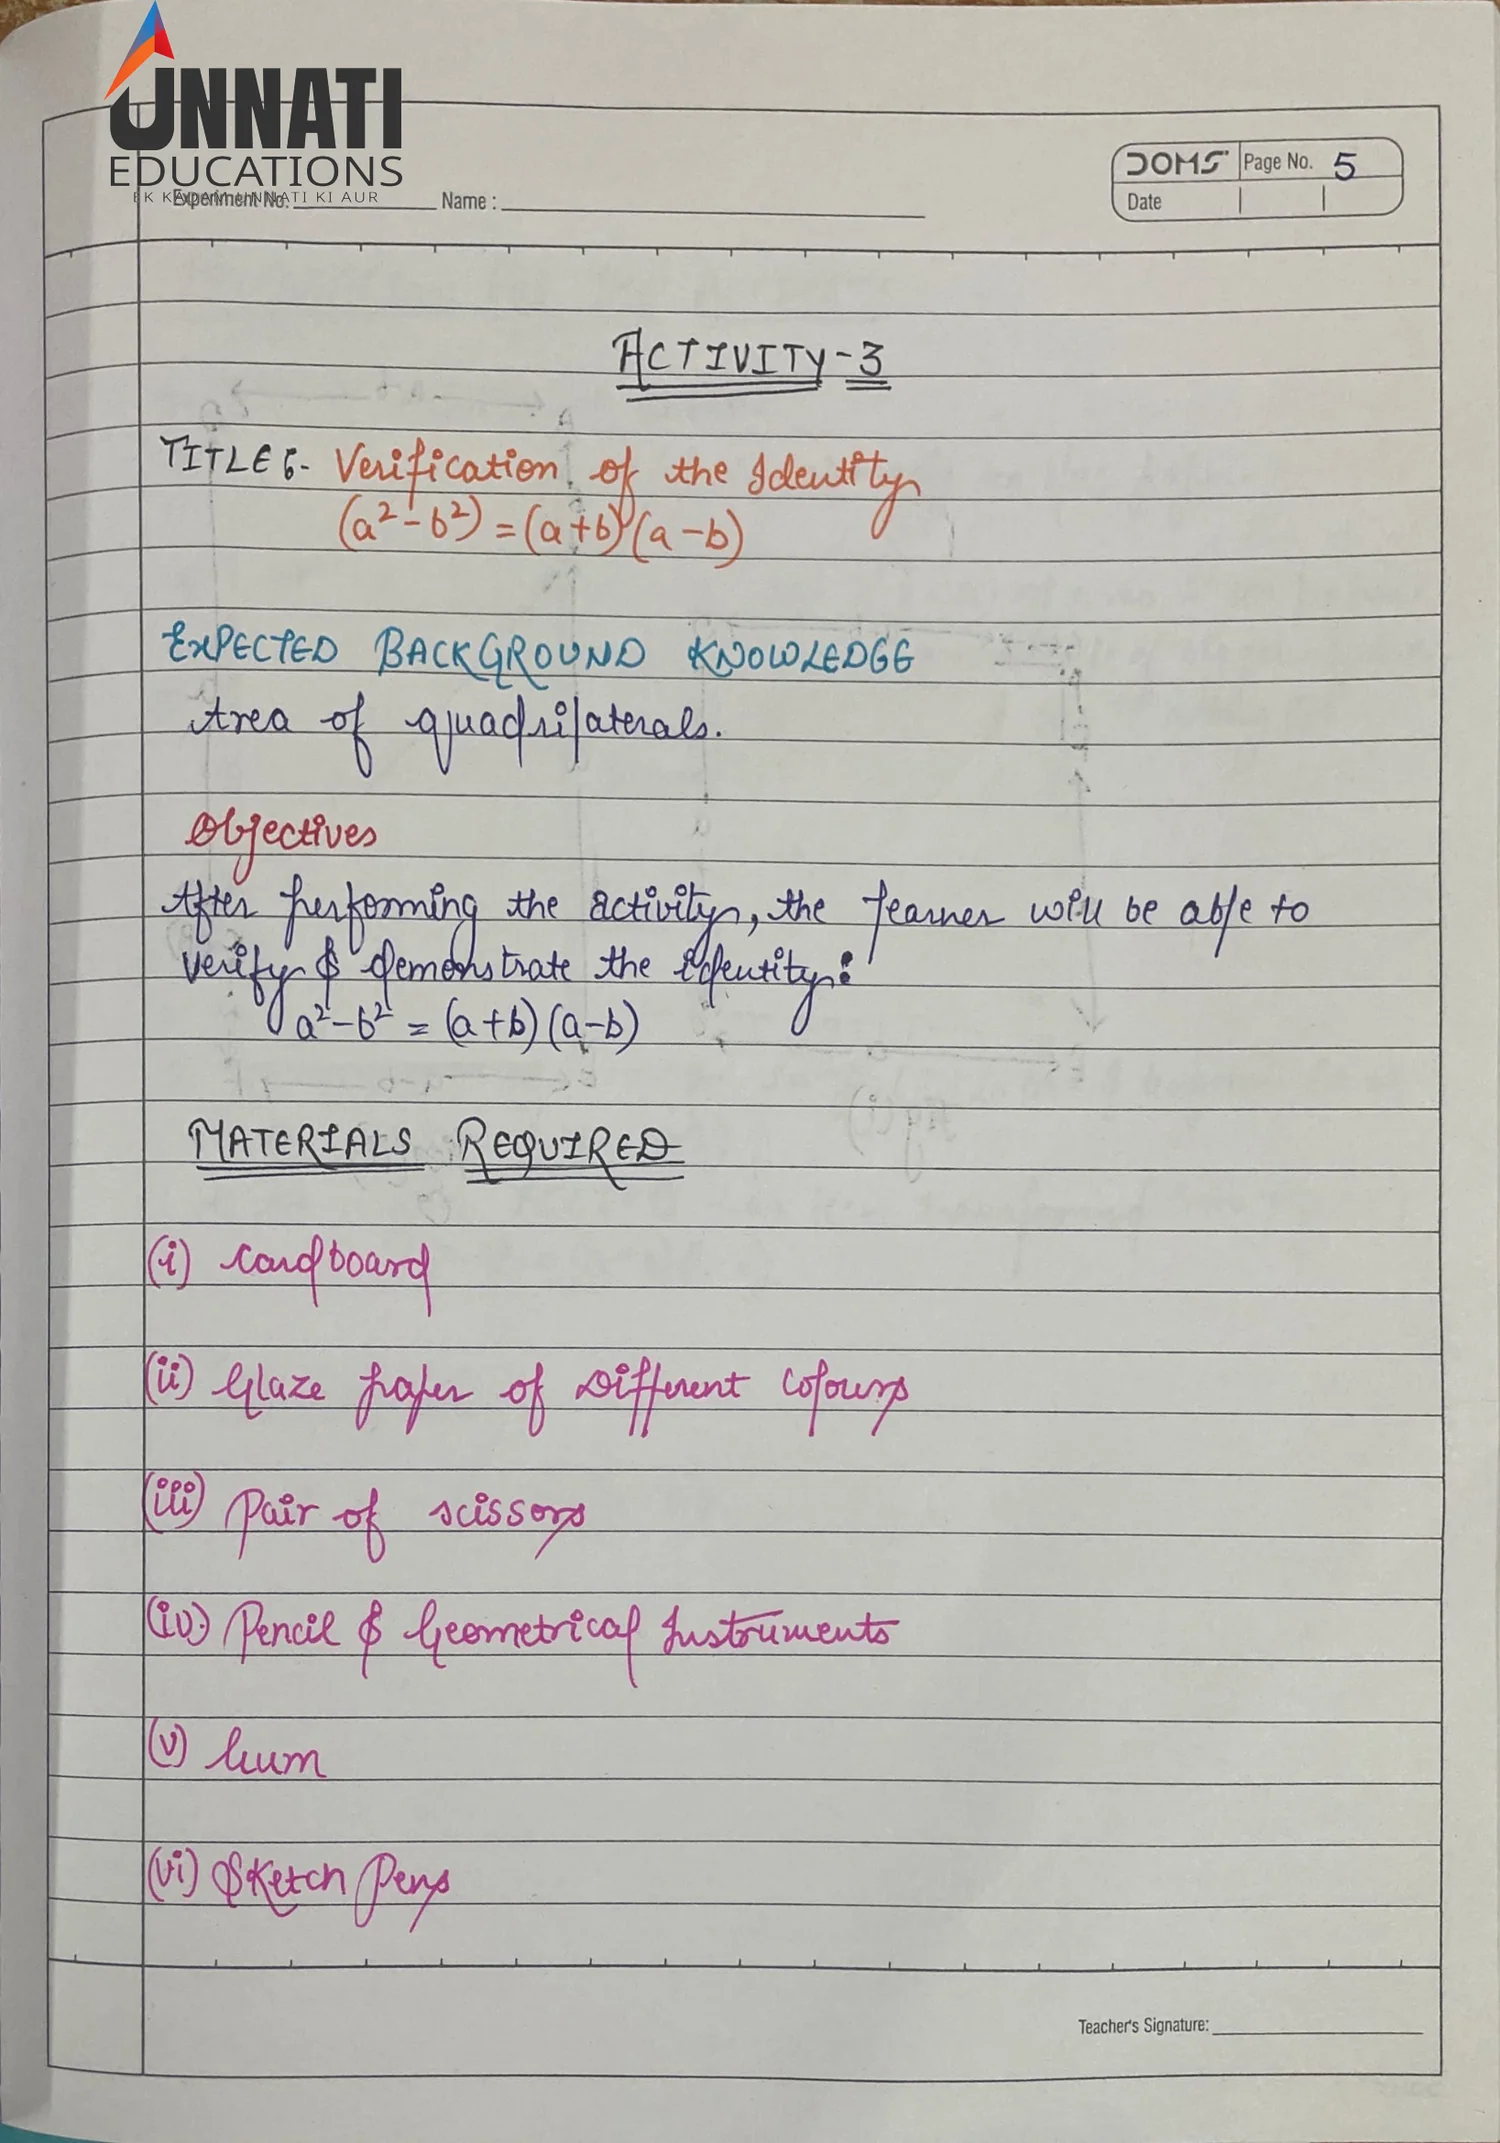 UNNATI
EDUCATIONS
EK KADAM UNNATI KI AUR
Experiment No. Name :
DOMS Page No. 5
Date
ACTIVITY-3
TITLE:- Verification of the Identity
(a²-b²) = (a+b)(a-b)
EXPECTED BACKGROUND KNOWLEDGE
Area of quadrilaterals.
Objectives
After performing the activity, the learner will be able to
verify & demonstrate the identity:
a²-b² = (a+b)(a-b)
MATERIALS REQUIRED
(i) Cardboard
(ii) Glaze paper of Different Colours
(iii) Pair of scissors
(iv) Pencil & Geometrical Instruments
(v) Gum
(vi) Sketch Pens
Teacher's Signature: